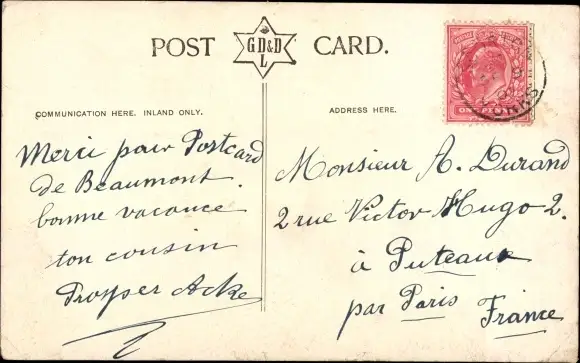 POST CARD.
G.D.&D.
L
COMMUNICATION HERE. INLAND ONLY.
Merci pour Postcard
de Beaumont.
bonne vacance
ton cousin
Prosper Acke
ADDRESS HERE.
Monsieur A. Durand
2 rue Victor Hugo 2.
à Puteaux
par Paris
France
ONE PENNY